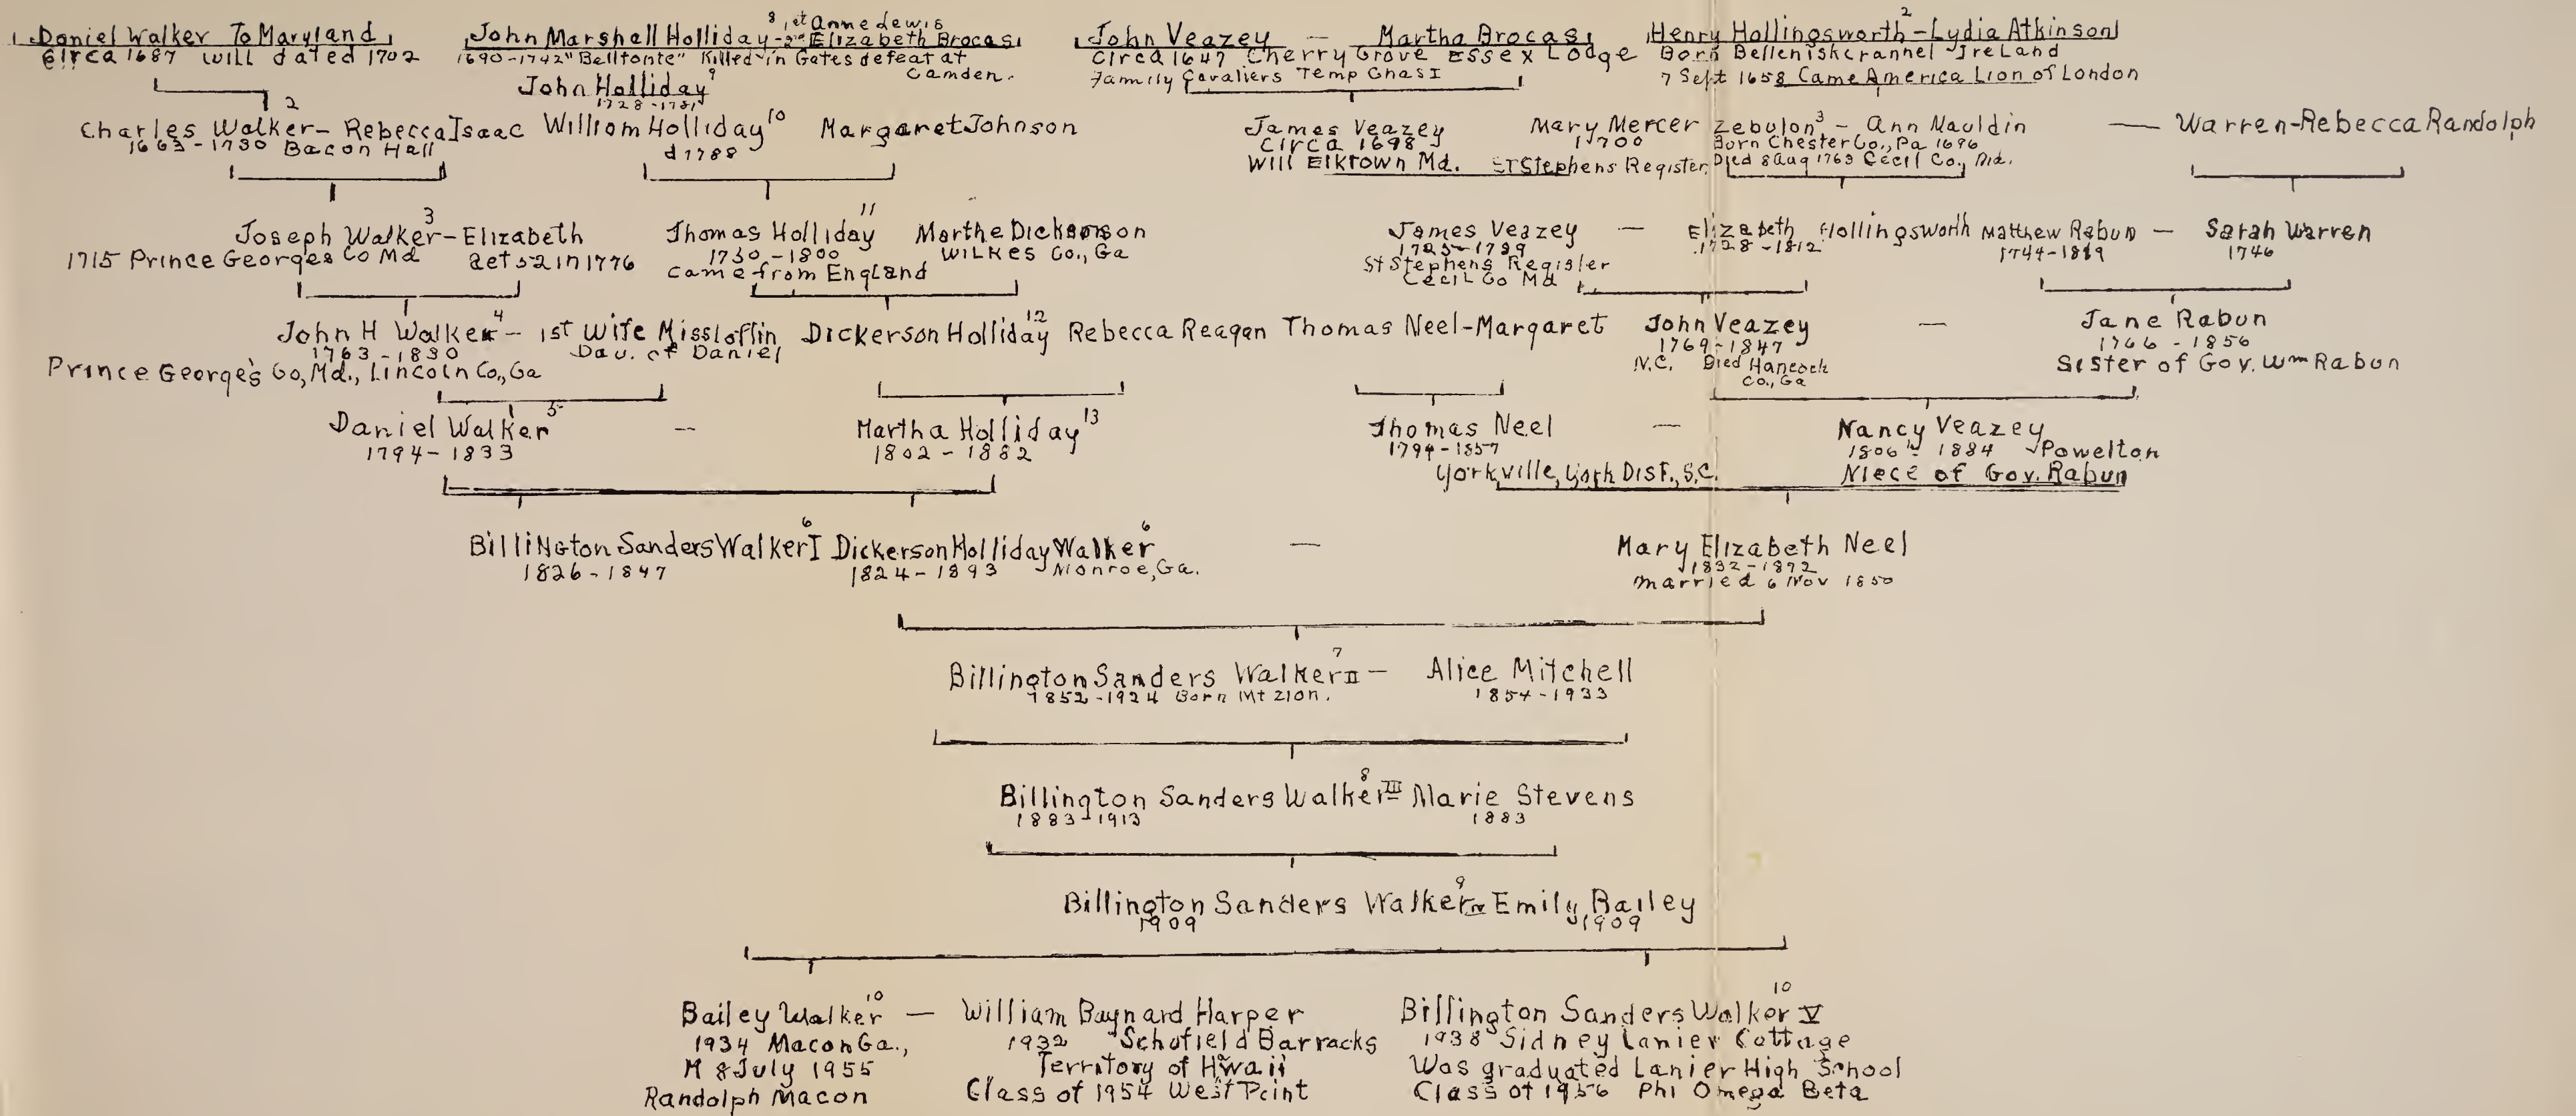 1 Daniel Walker To Maryland
Circa 1687 will dated 1702
8 1st Anne Lewis
John Marshall Holliday - 2nd Elizabeth Brocas
1690-1742 "Belltonte" Killed in Gates defeat at
Camden.
John Holliday 9
1728-1781
John Veazey — Martha Brocas
Circa 1647 Cherry Grove Essex Lodge
Family Cavaliers Temp Chas I
Henry Hollingsworth 2 - Lydia Atkinson
Born Belleniskcrannel Ireland
7 Sept 1658 Came America Lion of London
2
Charles Walker - Rebecca Isaac
1663-1730 Bacon Hall
William Holliday 10 Margaret Johnson
d 1788
James Veazey
Circa 1698
Will Elktown Md.
Mary Mercer
1700
St Stephens Register
Zebulon 3 - Ann Mauldin
Born Chester Co., Pa 1696
Died 8 Aug 1763 Cecil Co., Md.
— Warren-Rebecca Randolph
Joseph Walker 3 - Elizabeth
1715 Prince Georges Co Md aet 52 in 1776
Thomas Holliday 11
1730-1800
came from England
Marthe Dickerson
Wilkes Co., Ga
James Veazey — Elizabeth Hollingsworth
1728-1812
St Stephens Register
Cecil Co Md
Matthew Rabun — Sarah Warren
1744-1819 1746
John H Walker 4 - 1st Wife Miss Loflin
1763-1830 Dau. of Daniel
Prince George's Co, Md., Lincoln Co., Ga
Dickerson Holliday 12 Rebecca Reagan
Thomas Neel-Margaret
John Veazey — Jane Rabun
1769-1847 1766-1856
N.C. Died Hancock
Co., Ga
Sister of Gov. Wm Rabun
Daniel Walker 5 — Martha Holliday 13
1794-1833 1802-1882
Thomas Neel — Nancy Veazey
1794-1857 1806-1884 Powelton
Yorkville, York Dist., S.C. Niece of Gov. Rabun
Billington Sanders Walker I 6 Dickerson Holliday Walker 6 — Mary Elizabeth Neel
1826-1847 1824-1893 Monroe, Ga. 1832-1892
married 6 Nov 1850
Billington Sanders Walker II 7 — Alice Mitchell
1852-1924 Born Mt Zion. 1854-1933
Billington Sanders Walker III 8 Marie Stevens
1883-1913 1883
Billington Sanders Walker IV 9 Emily Bailey
1909 1909
Bailey Walker 10 — William Baynard Harper
1934 Macon Ga., 1932 Schofield Barracks
M 8 July 1955 Territory of Hwaii
Randolph Macon Class of 1954 West Point
Billington Sanders Walker V 10
1938 Sidney Lanier Cottage
Was graduated Lanier High School
Class of 1956 Phi Omega Beta